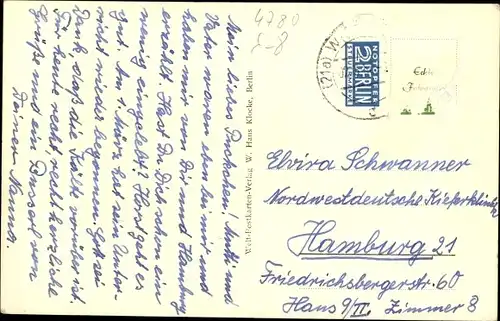 4780
2-8
Mein liebes Putkchen! Mutti und
Vater waren eben bei mir und
haben mir von Dir und Hamburg
erzählt. Hast Du Dich schon ein
wenig eingelebt? Horst geht es
gut. Am 1. März hat sein Unter-
richt wieder begonnen. Gott sei
Dank, daß die Kälte vorüber ist.
Für heute recht, recht herzliche
Grüße und ein Bussert von
Deiner Nanna.
Welt-Postkarten-Verlag W. Hans Klocke, Berlin
(21a) W
NOTOPFER
2 BERLIN
STEUERMARKE
Echte
Elvira Schwanner
Nordwestdeutsche Kieferklinik
Hamburg 21
Friedrichsbergerstr. 60
Haus 9/II. Zimmer 8